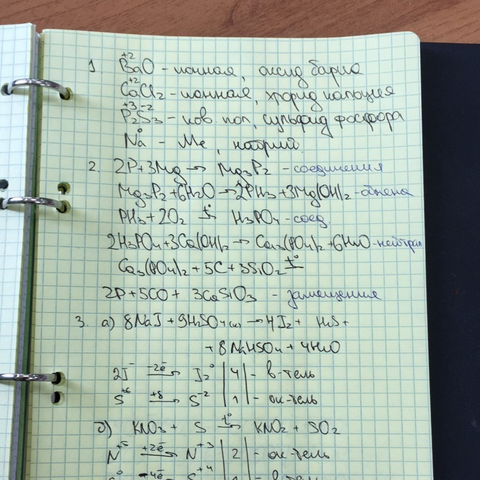 1 BaO - ионная, оксид бария
+2
CaCl2 - ионная, хлорид кальция
+2
P2S3 - ков пол, сульфид фосфора
+3 -2
Na° - Me, натрий
2. 2P+3Mg → Mg3P2 - соединения
Mg3P2+6H2O → 2PH3+3Mg(OH)2 - обмена
PH3+2O2 t° H3PO4 - соед
2H3PO4+3Ca(OH)2 → Ca3(PO4)2+6H2O - нейтрал
Ca3(PO4)2 + 5C + 3SiO2 t°
2P+5CO+ 3CaSiO3 - замещения
3. а) 8NaI + 9H2SO4(к) → 4I2 + H2S+
+ 8NaHSO4 + 4H2O
2I⁻ -2e → I2° | 4 | - в-тель
S+6 +8 → S-2 | 1 | - ок-тель
б) KNO3 + S t° → KNO2 + SO2
N+5 +2e → N+3 | 2 | - ок-тель
S° -4e → S+4 | 1 | - в-тель